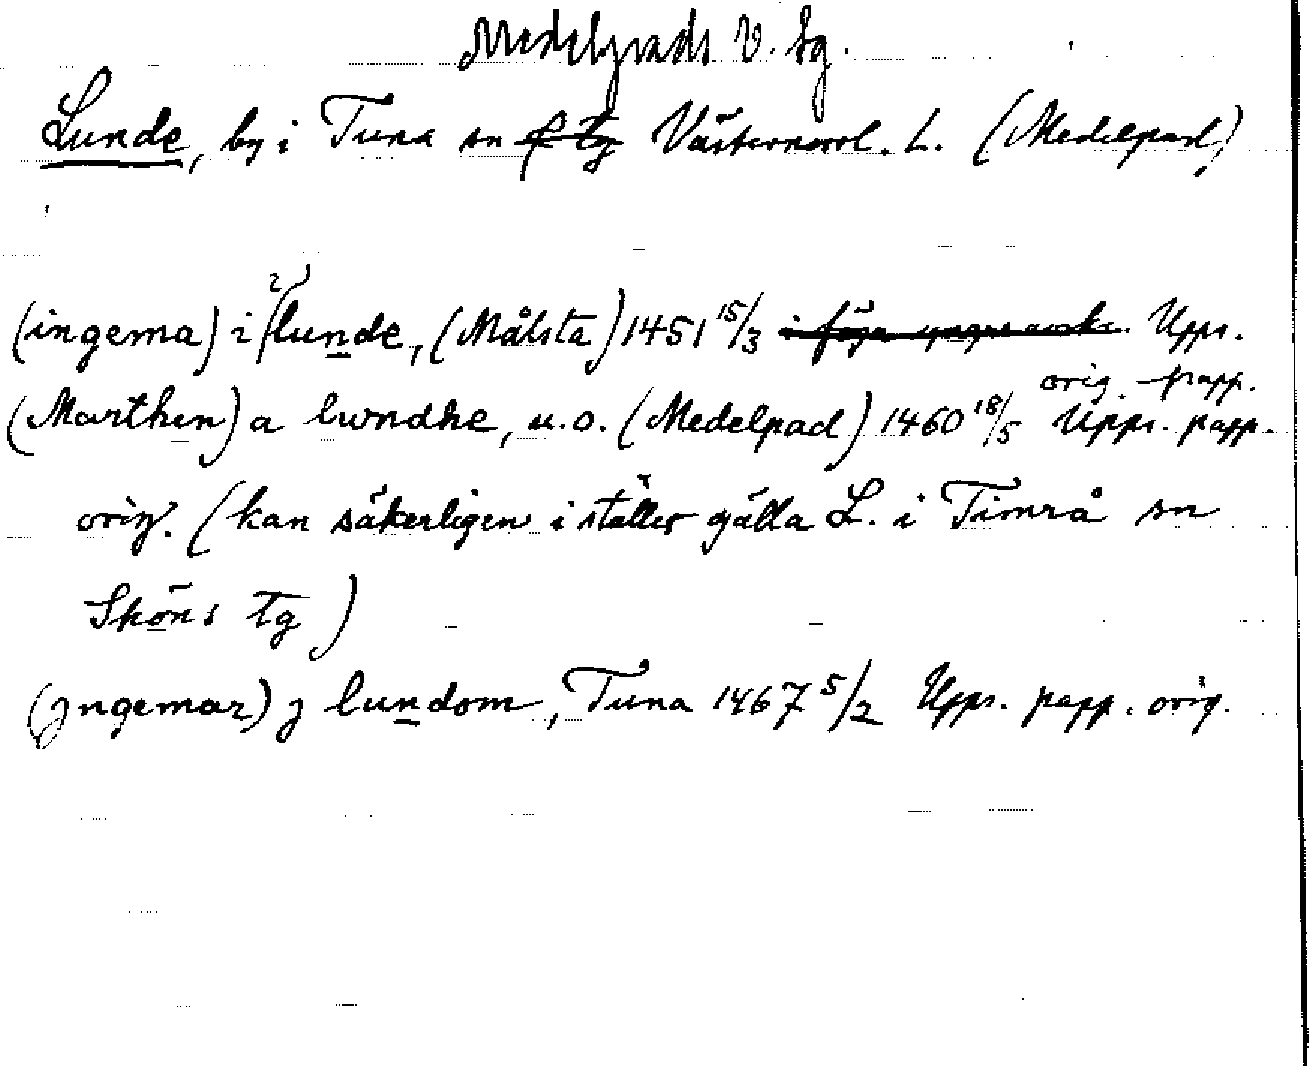 Medelpads V. tg.
Lunde, by i Tuna sn f tg Västernorrl. L. (Medelpad)
(ingema) i (?) lunde, (Målsta) 1451 15/3 Upps.
orig. papp.
(Marthen) a lwndhe, u.o. (Medelpad) 1460 18/5 Upps. papp.
orig. (kan säkerligen i stället gälla L. i Timrå sn
Sköns tg)
(Jngemar) j lundom, Tuna 1467 5/2 Upps. papp. orig.